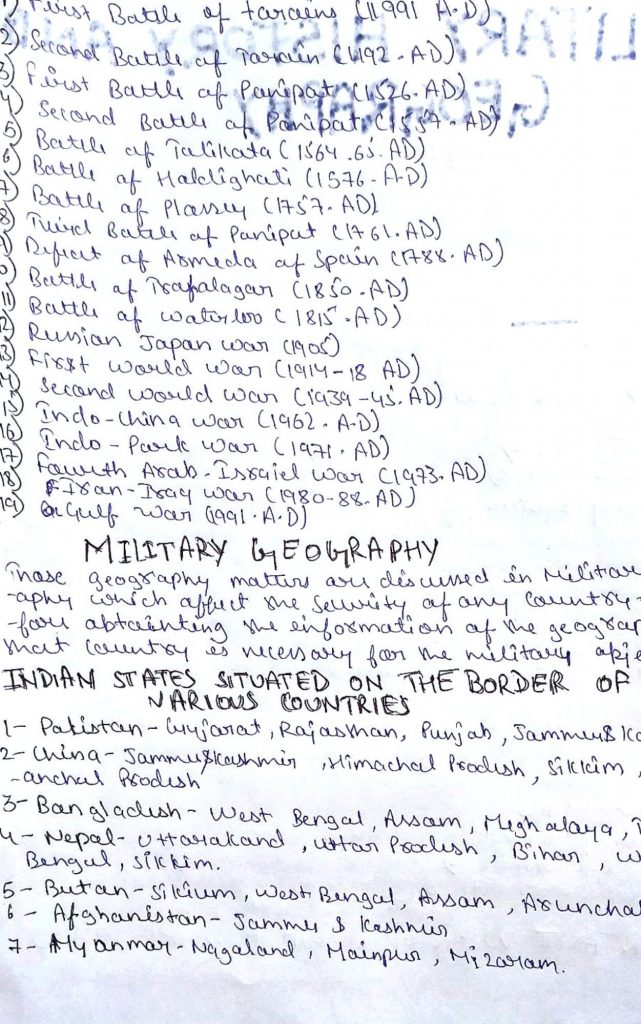 1) First Battle of tarains (11991 A.D)
2) Second Battle of Tarain (1192-AD)
3) First Battle of Panipat (1526.AD)
4) Second Battle of Panipat (1557.AD)
5) Battle of Talikata (1564.65.AD)
6) Battle of Haldighati (1576-A-D)
7) Battle of Plassey (1757.AD)
8) Third Battle of Panipat (1761.AD)
9) Defeat of Armeda of Spain (1788.AD)
10) Battle of Trafalagar (1850.AD)
11) Battle of waterloo (1815.AD)
12) Russian Japan war (1905)
13) First world war (1914-18 AD)
14) Second world war (1939-45.AD)
15) Indo-China war (1962.A-D)
16) Indo-Park war (1971.AD)
17) Fawuth Arab-Israiel war (1973.AD)
18) Iran-Iray war (1980-88.AD)
19) Gulf war (1991.A.D)
MILITARY GEOGRAPHY
Those geography matters are discussed in Militar
-aphy which affect the security of any country
-fore abtainting the information of the geograp
that country is necessary for the military obje
INDIAN STATES SITUATED ON THE BORDER OF
VARIOUS COUNTRIES
1- Pakistan- Gujarat, Rajasthan, Punjab, Jammu & Ka
2- China- Jammu & Kashmir, Himachal Pradesh, Sikkim,
-anchal Pradesh
3- Bangladesh- West Bengal, Assam, Meghalaya, T
4- Nepal- Uttarakand, Uttar Pradesh, Bihar, W
Bengal, Sikkim.
5- Butan- Sikium, West Bengal, Assam, Arunchal
6- Afghanistan- Jammu & Kashmir
7- Myanmar- Nagaland, Mainpur, Mizaram.